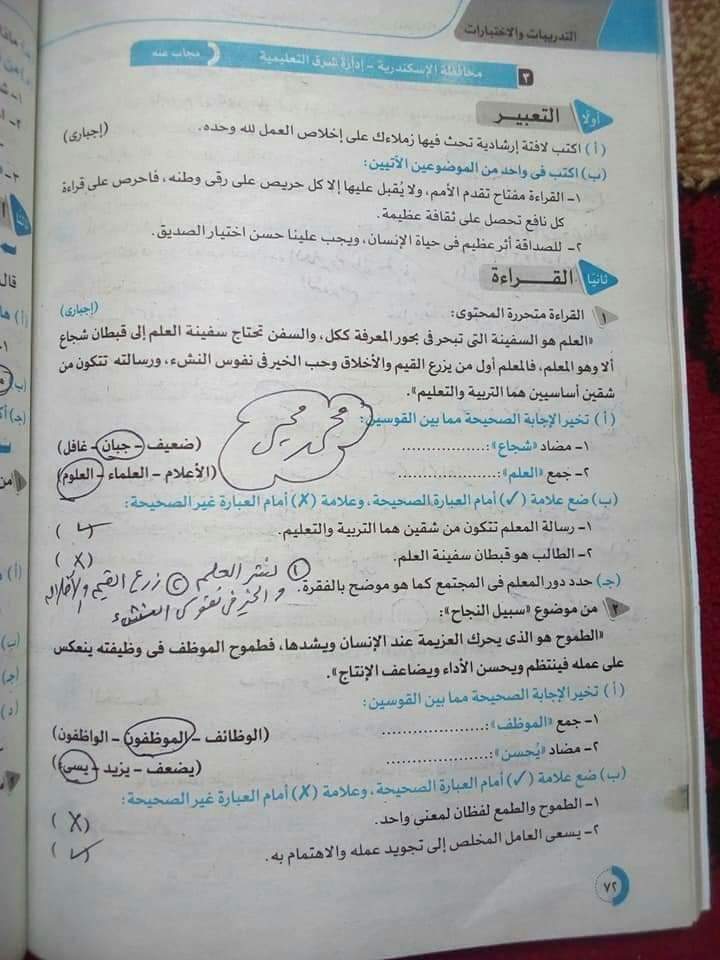 التدريبات والاختبارات
٣ محافظة الإسكندرية - إدارة شرق التعليمية مجاب عنه
أولًا التعبير
(أ) اكتب لافتة إرشادية تحث فيها زملاءك على إخلاص العمل لله وحده. (إجبارى)
(ب) اكتب فى واحد من الموضوعين الآتيين:
١- القراءة مفتاح تقدم الأمم، ولا يُقبل عليها إلا كل حريص على رقى وطنه، فاحرص على قراءة
كل نافع تحصل على ثقافة عظيمة.
٢- للصداقة أثر عظيم فى حياة الإنسان، ويجب علينا حسن اختيار الصديق.
ثانيًا القـــراءة
١ القراءة متحررة المحتوى: (إجبارى)
«العلم هو السفينة التى تبحر فى بحور المعرفة ككل، والسفن تحتاج سفينة العلم إلى قبطان شجاع
ألا وهو المعلم، فالمعلم أول من يزرع القيم والأخلاق وحب الخير فى نفوس النشء، ورسالته تتكون من
شقين أساسيين هما التربية والتعليم».
(أ) تخير الإجابة الصحيحة مما بين القوسين:
١- مضاد «شجاع»: .................. (ضعيف - جبان - غافل)
٢- جمع «العلم»: .................. (الأعلام - العلماء - العلوم)
(ب) ضع علامة (✓) أمام العبارة الصحيحة، وعلامة (✗) أمام العبارة غير الصحيحة:
١- رسالة المعلم تتكون من شقين هما التربية والتعليم. (✓)
٢- الطالب هو قبطان سفينة العلم. (X)
نشر العلم زرع القيم والأخلاق
(جـ) حدد دور المعلم فى المجتمع كما هو موضح بالفقرة.
والخير فى نفوس النشء
٢ من موضوع «سبيل النجاح»:
«الطموح هو الذى يحرك العزيمة عند الإنسان ويشدها، فطموح الموظف فى وظيفته ينعكس
على عمله فينتظم ويحسن الأداء ويضاعف الإنتاج».
(أ) تخير الإجابة الصحيحة مما بين القوسين:
١- جمع «الموظف»: .................. (الوظائف - الموظفون - الواظفون)
٢- مضاد «يُحسن»: .................. (يضعف - يزيد - يسىء)
(ب) ضع علامة (✓) أمام العبارة الصحيحة، وعلامة (✗) أمام العبارة غير الصحيحة:
١- الطموح والطمع لفظان لمعنى واحد. (X)
٢- يسعى العامل المخلص إلى تجويد عمله والاهتمام به. (✓)
٧٢